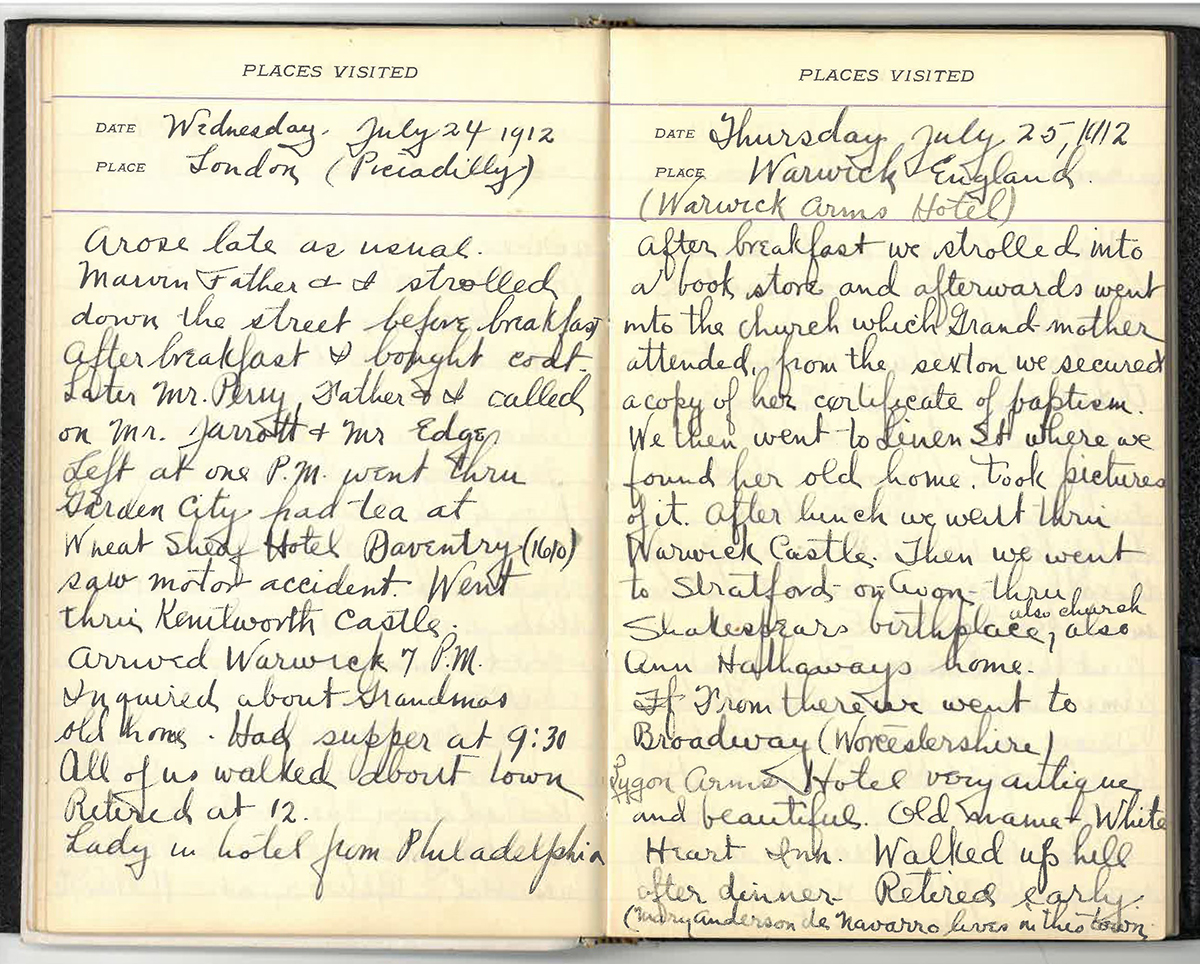 PLACES VISITED
DATE Wednesday. July 24 1912
PLACE London (Piciadilly)
Arose late as usual.
Marvin Father & I strolled
down the street before breakfast
After breakfast I bought coat.
Later Mr. Perry, Father & I called
on Mr. Jarrott & Mr Edge
Left at one P.M. went thru
Garden City had tea at
Wheat Sheaf Hotel Daventry (1610)
saw motor accident. Went
thru Kenilworth Castle.
Arrived Warwick 7 P.M.
Inquired about Grandmas
old home. Had supper at 9:30
All of us walked about town
Retired at 12.
Lady in hotel from Philadelphia
PLACES VISITED
DATE Thursday July 25, 1912
PLACE Warwick England.
(Warwick Arms Hotel)
After breakfast we strolled into
a book store and afterwards went
into the church which Grand mother
attended, from the sexton we secured
a copy of her certificate of baptism.
We then went to Linen St where we
found her old home. took pictures
of it. After lunch we went thru
Warwick Castle. Then we went
to Stratford on Avon - thru
also church
Shakespears birthplace, also
Ann Hathaways home.
If From there we went to
Broadway (Worcestershire)
Lygon Arms Hotel very antique
and beautiful. Old name - White
Heart Inn. Walked up hill
after dinner. Retired early.
(Mary Anderson de Navarro lives in this town.